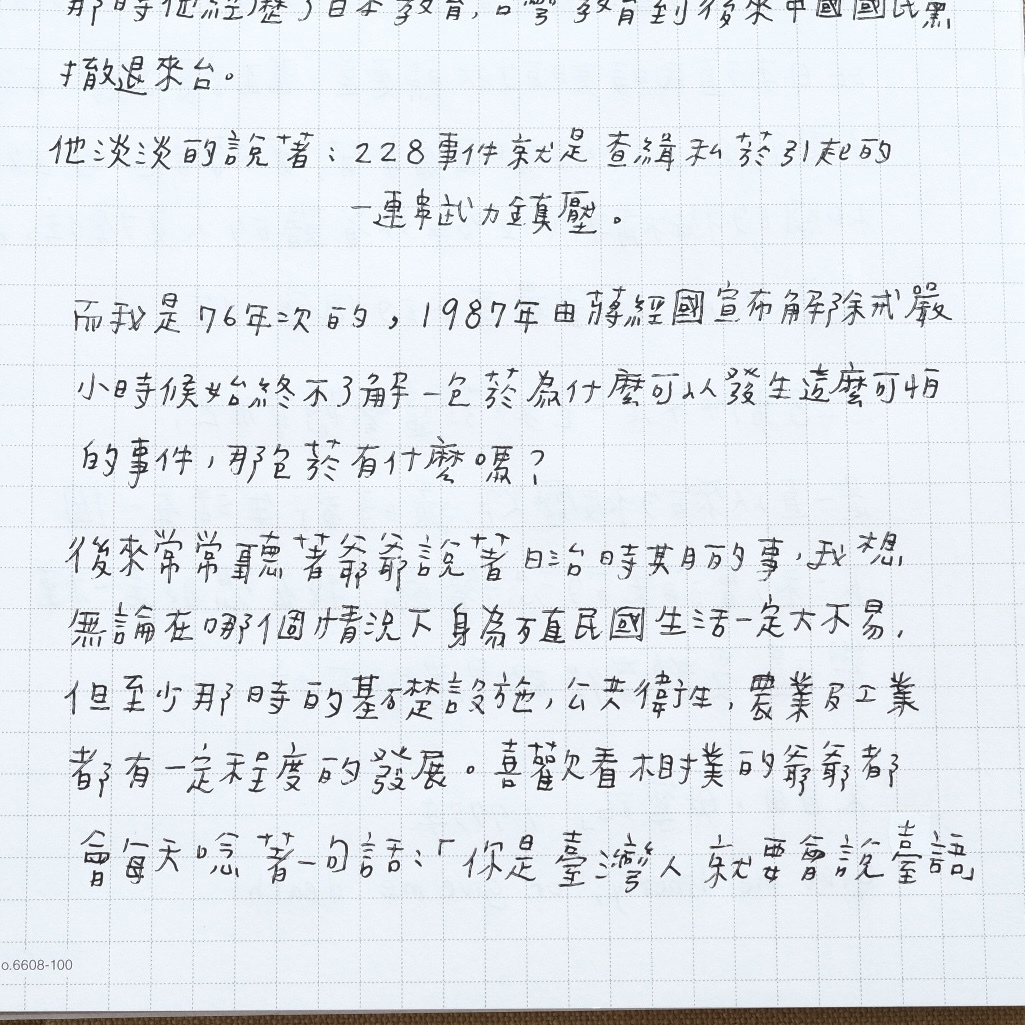 那時他經歷了日本教育,台灣教育到後來中國國民黨
撤退來台。
他淡淡的說著:228事件就是查緝私菸引起的
一連串武力鎮壓。
而我是76年次的,1987年由蔣經國宣布解除戒嚴
小時候始終不了解一包菸為什麼可以發生這麼可怕
的事件,那包菸有什麼嗎?
後來常常聽著爺爺說著日治時期的事,我想
無論在哪個情況下身為殖民國生活一定大不易,
但至少那時的基礎設施,公共衛生,農業及工業
都有一定程度的發展。喜歡看相撲的爺爺都
會每天唸著一句話:「你是臺灣人就要會說臺語」
o.6608-100